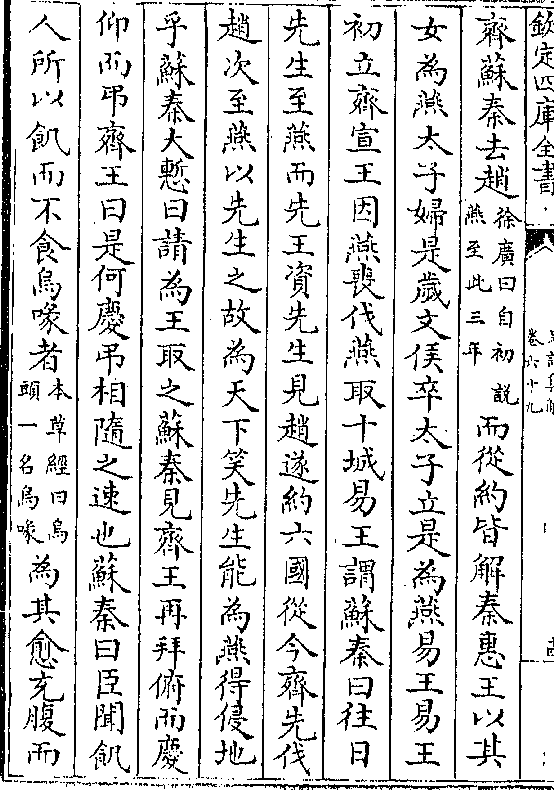 欽定四庫全書
卷六十九
齊蘇秦去趙徐廣曰自初說燕至此三年而從約皆解秦惠王以其
女為燕太子婦是歲文侯卒太子立是為燕易王易王
初立齊宣王因燕喪伐燕取十城易王謂蘇秦曰往日
先生至燕而先王資先生見趙遂約六國從今齊先伐
趙次至燕以先生之故為天下笑先生能為燕得侵地
乎蘇秦大慙曰請為王取之蘇秦見齊王再拜俯而慶
仰而弔齊王曰是何慶弔相隨之速也蘇秦曰臣聞飢
人所以飢而不食烏喙者本草經曰烏頭一名烏喙為其愈充腹而